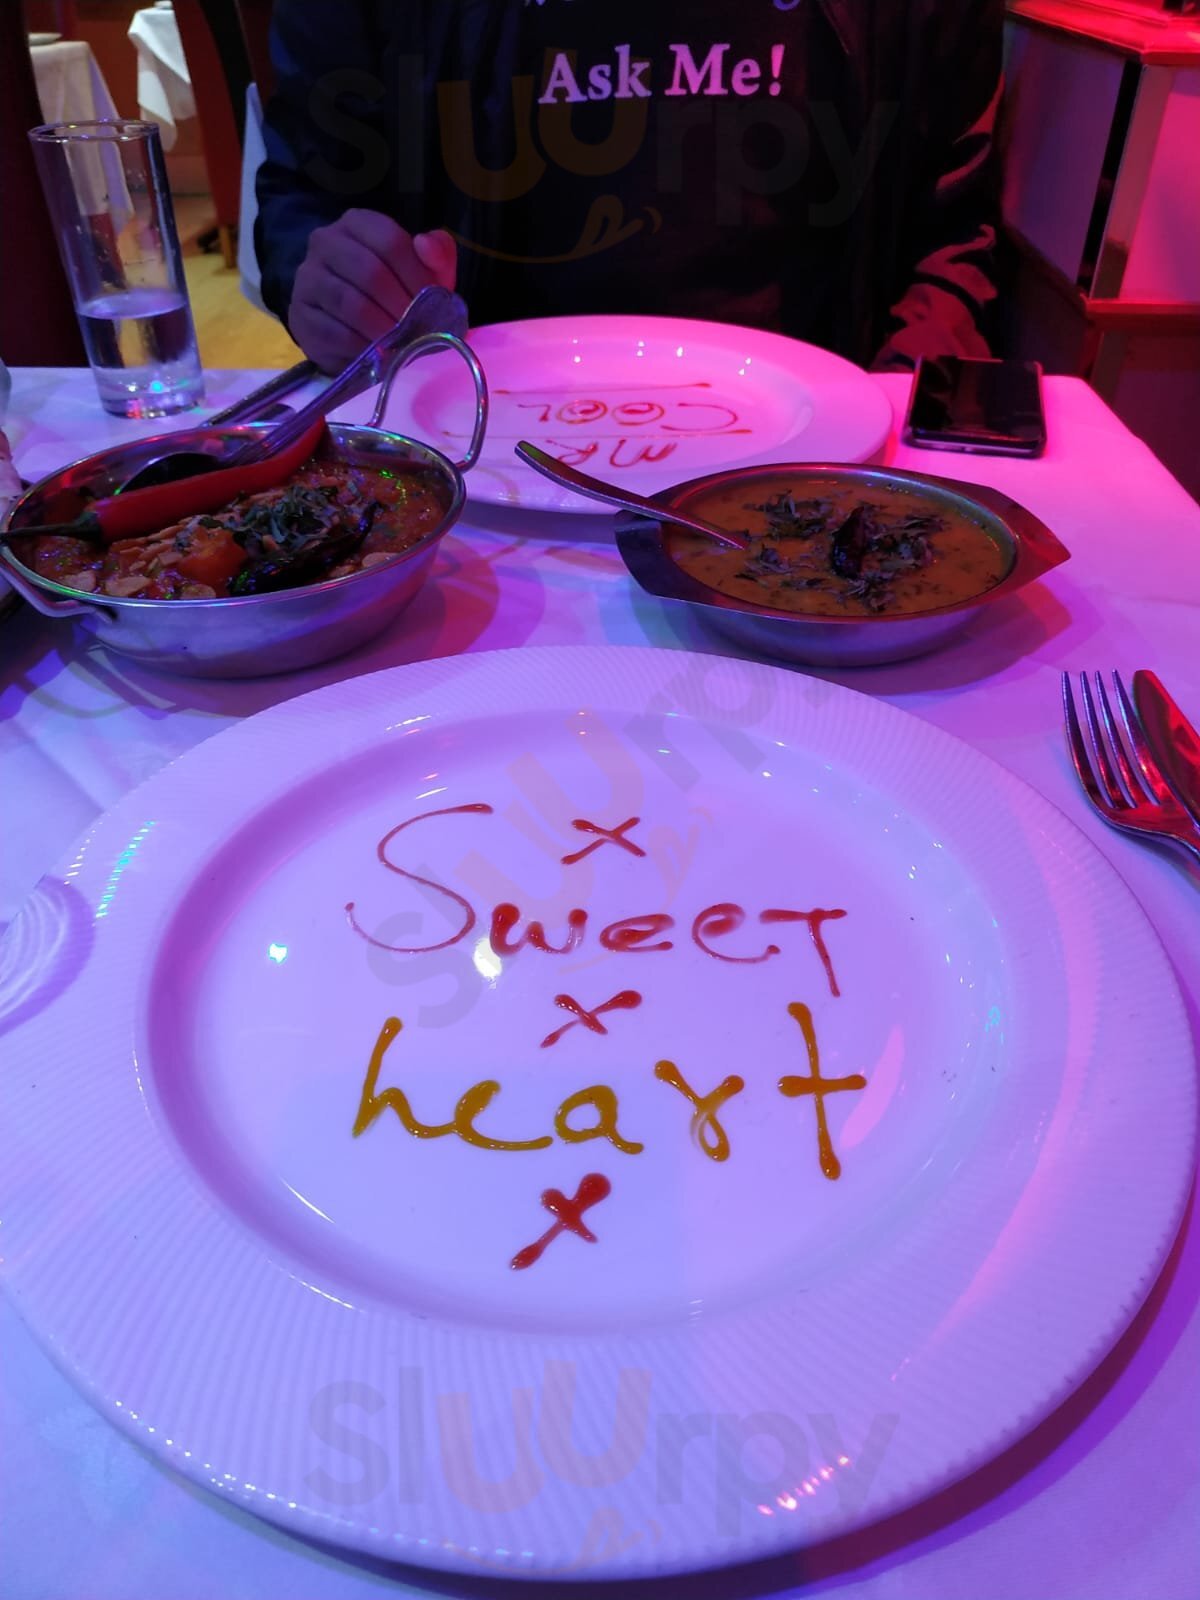 Ask Me!
Sluurpy
MR
COOL
Sluurpy
x
Sweet
x
heart
x
Sluurpy